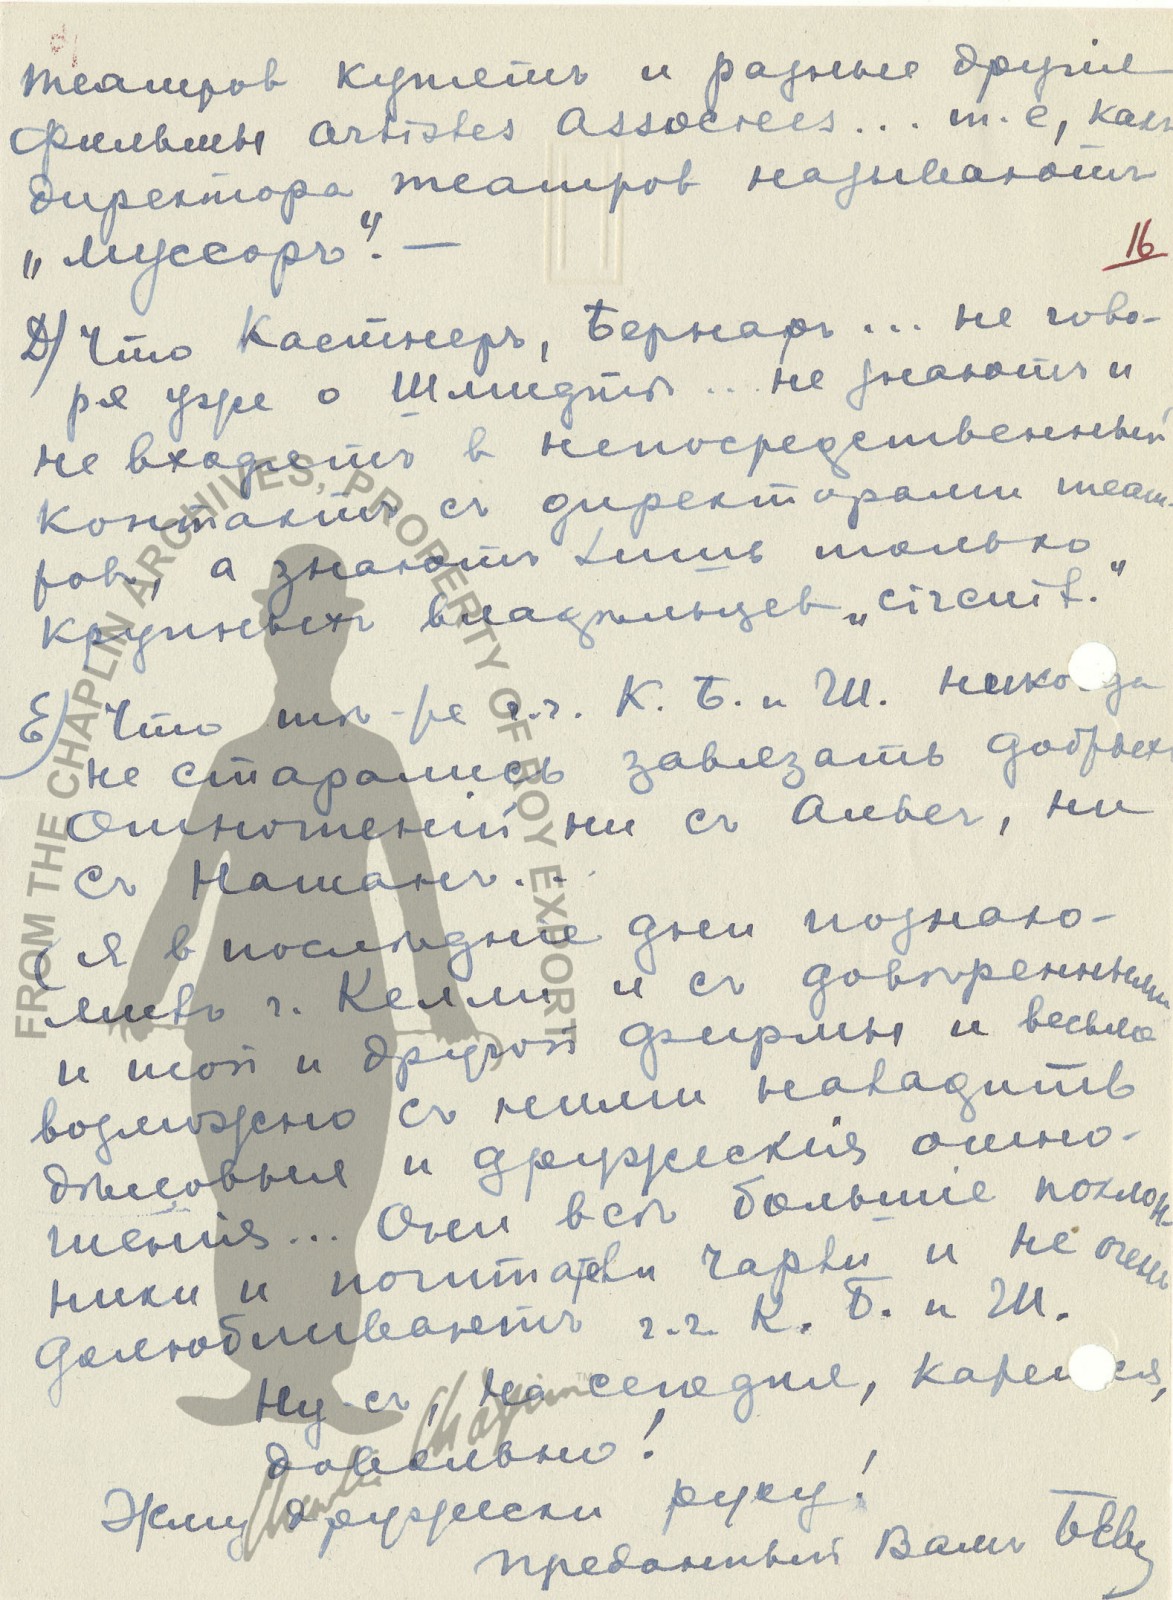 театров купить и разные другiе
фильмы Artistes Associees... т.е, какъ
директора театров называютъ
„Муссоръ". —
16
Д) Что Кастнеръ, Бернаръ... не гово-
ря уже о Шмидтѣ... не знаютъ и
не входятъ в непосредственный
контактъ съ директорами теат-
ровъ, а знаютъ лишь только
крупныхъ владѣльцев „circuit."
Е) Что гг. К. Б. и Ш. никогда
не старались завязать добрыхъ
отношенiй ни съ Альбер, ни
съ Натанъ...
(я в последнiе дни познако-
мивъ г. Келли и съ довѣренными
и той и другой фирмы и весьма
возможно съ ними наладить
дѣловыя и дружескiя отно-
шенiя... Они всѣ большiе поклон-
ники и почитатели Чарли и не очень
долюбливаютъ г.г. К. Б. и Ш.
Ну-съ, на сегодня, кажется,
довольно!
Жму дружески руку!
преданный Вамъ
FROM THE CHAPLIN ARCHIVES, PROPERTY OF ROY EXPORT
Charlie Chaplin